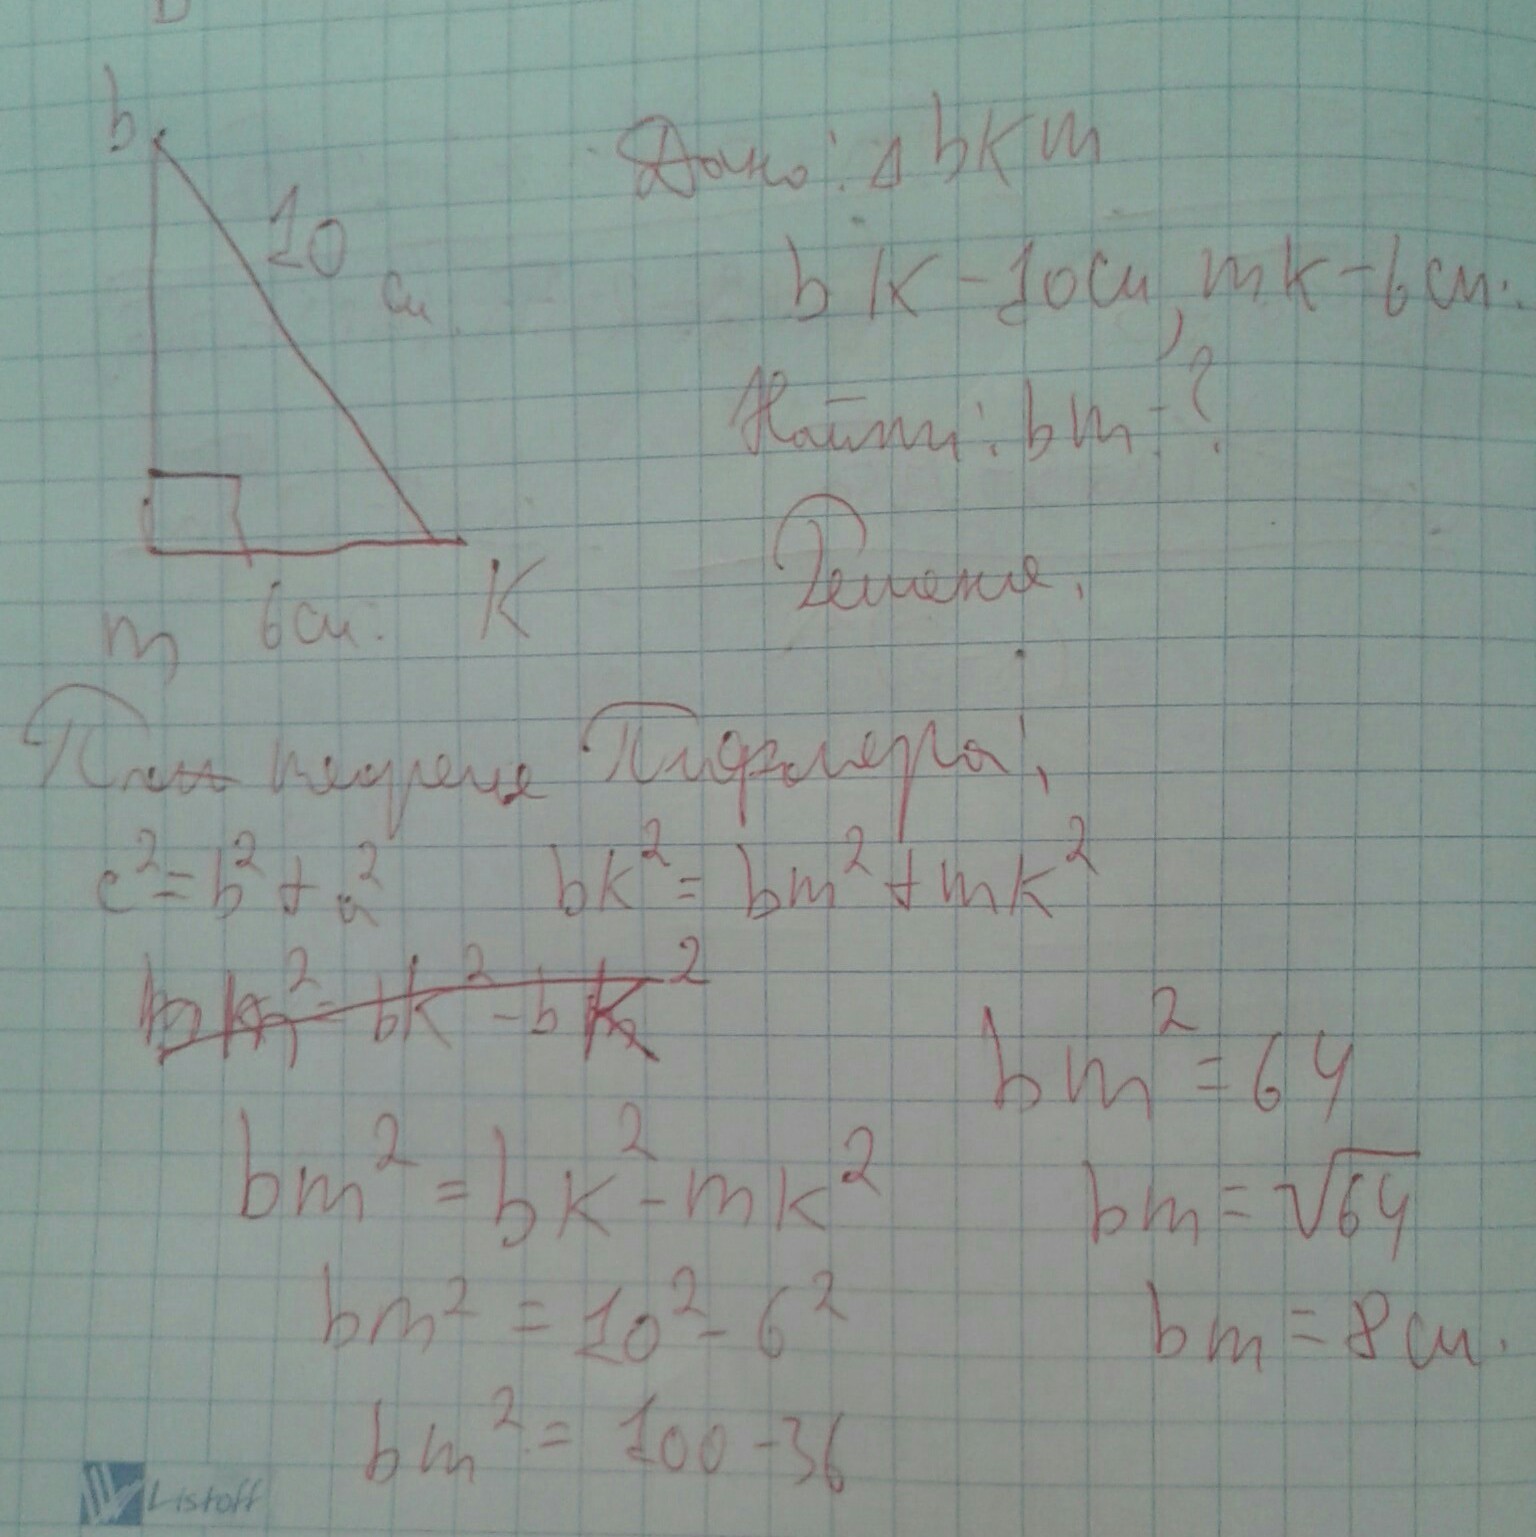 b
10
см
m 6см. K
Дано: Δ bkm
bK - 10см, mk - 6см.
Найти: bm - ?
Решения.
теорема Пифагора:
c²=b²+a² bk²=bm²+mk²
bm²=bk²-mk²
bm²=10²-6²
bm²=100-36
bm²=64
bm=√64
bm=8см.
Listoff